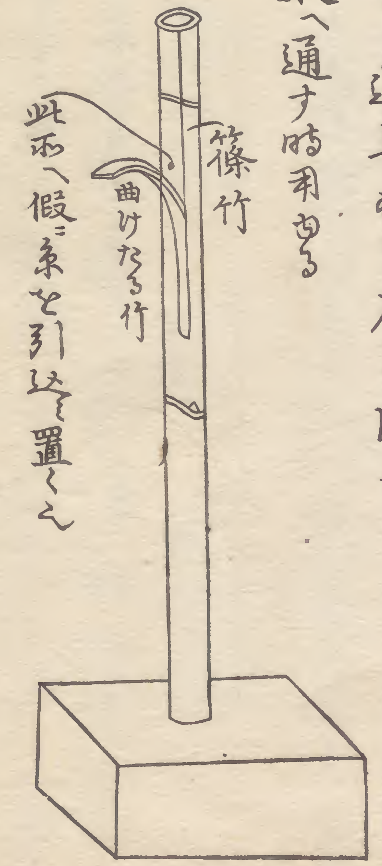 へ通す時用ゆる
篠竹
曲けたる竹
此所へ假ニ糸を引込ミ置くも